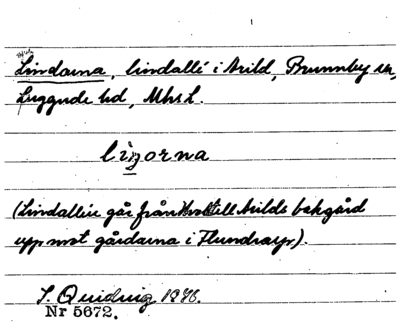 Lindarna, lindallé i Arild, Brunnby sn,
Luggude hd, Mhs l.
lizorna
(Lindallén går från Hotell Arilds bakgård
upp mot gårdarna i Flundrarp).
1976.
Nr 5672.